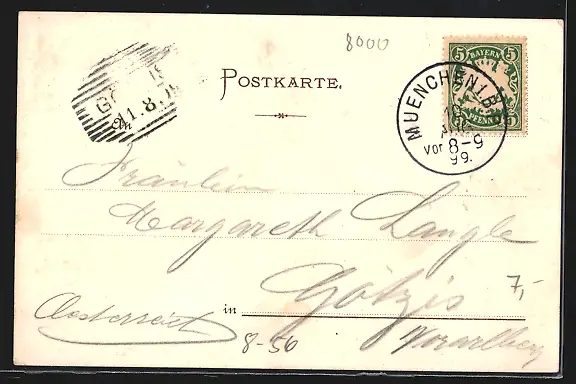 8000
POSTKARTE.
5 BAYERN 5
PFENNIG
MUENCHEN I.B.P.
Vor 8-9
99.
11.8.
Fräulein
Margareth Längle
in Götzis
7,-
Oesterreich
8-56
Vorarlberg